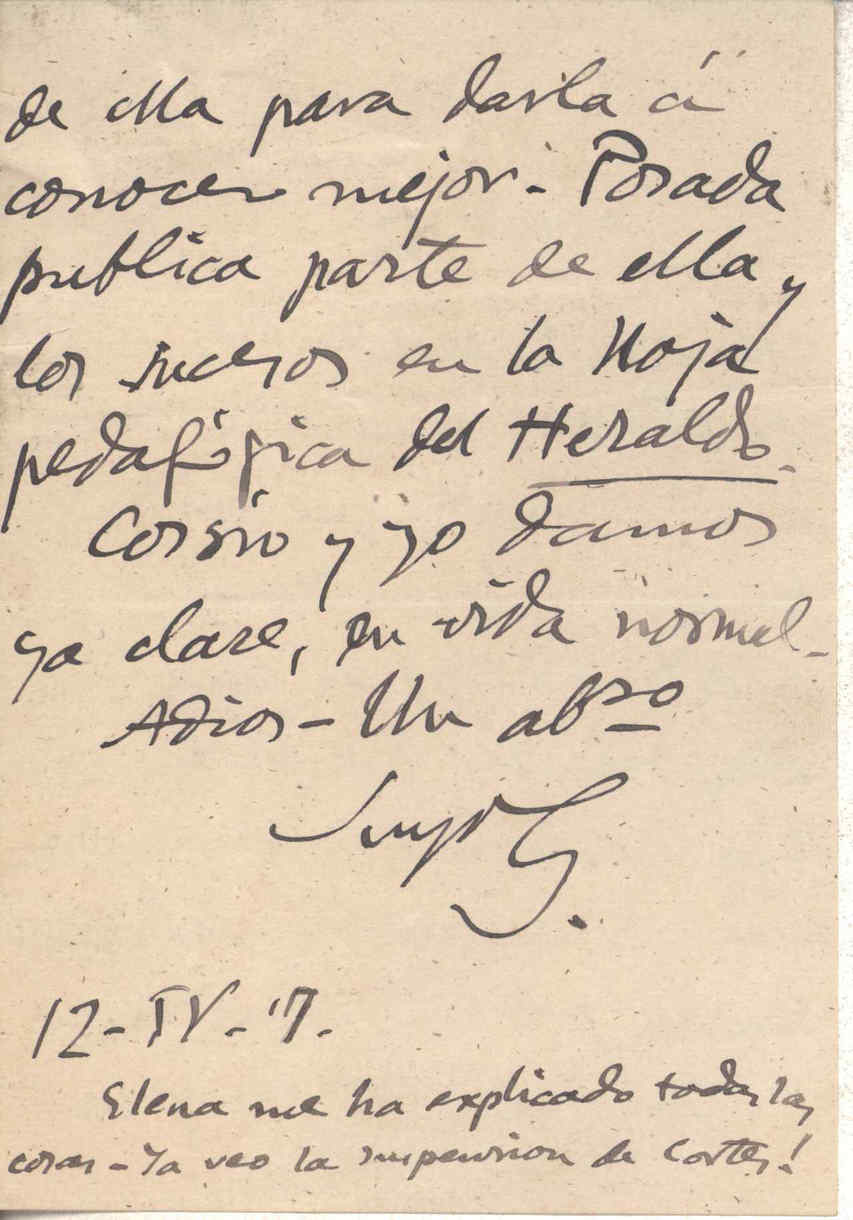 de ella para darla á
conocer mejor. - Posada
publica parte de ella y
los sucesos en la Hoja
pedagógica del Heraldo.
Cossío y yo damos
ya clase, en vida normal -
Adios - Un abzo
Suyo G.
12 - IV - '7.
Elena me ha explicado todas las
cosas - Ya veo la suspension de Cortes!